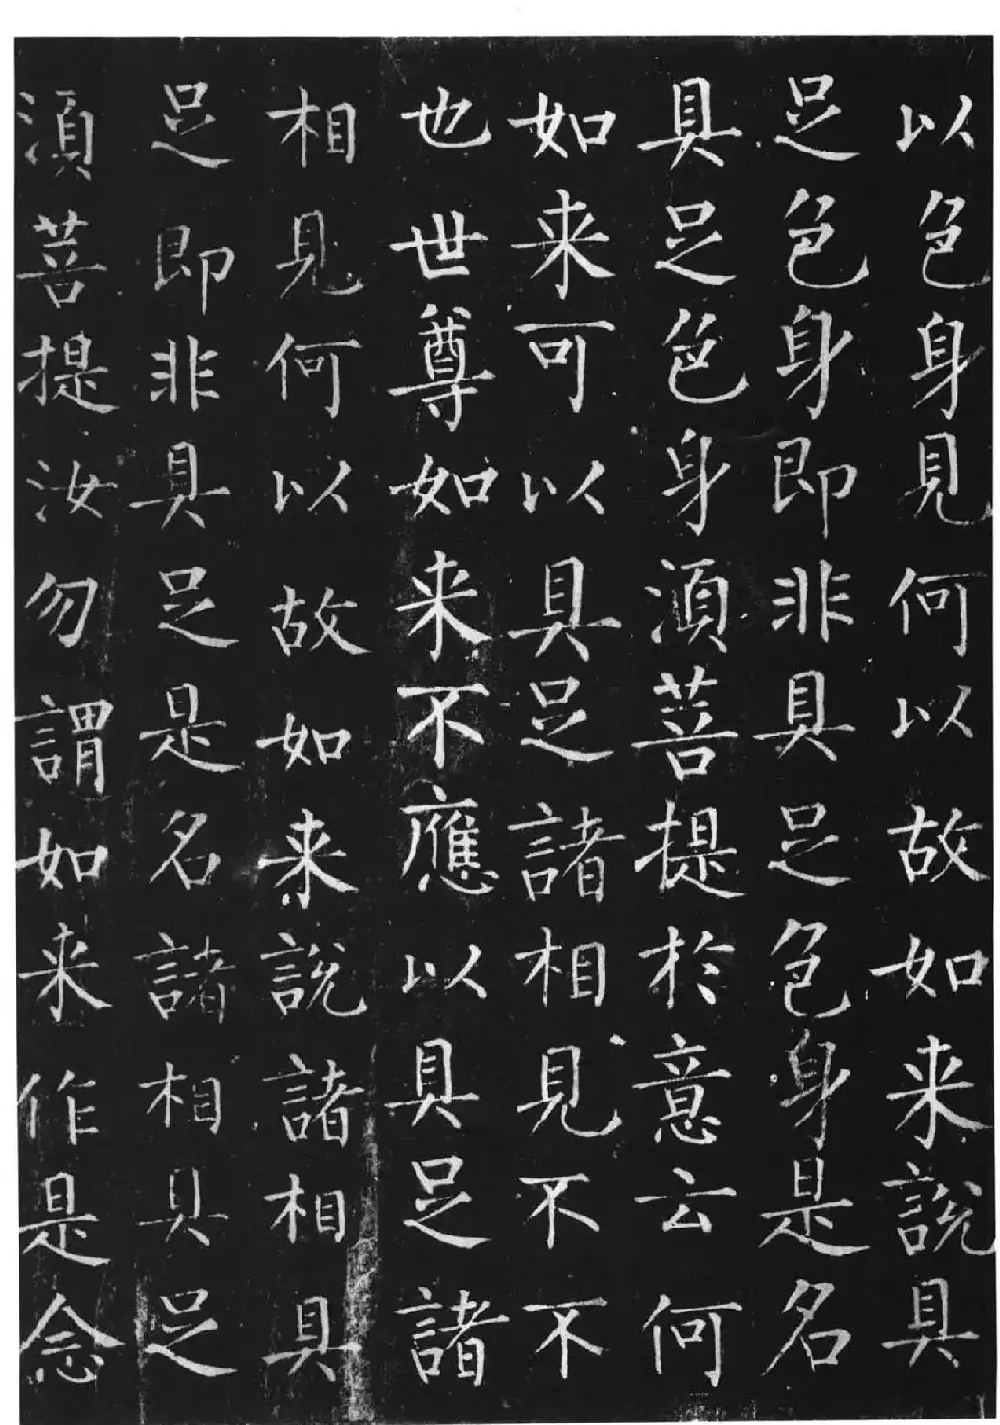 以色身見何以故如来說具
足色身即非具足色身是名
具足色身須菩提於意云何
如来可以具足諸相見不不
也世尊如来不應以具足諸
相見何以故如来說諸相具
足即非具足是名諸相具足
須菩提汝勿謂如来作是念